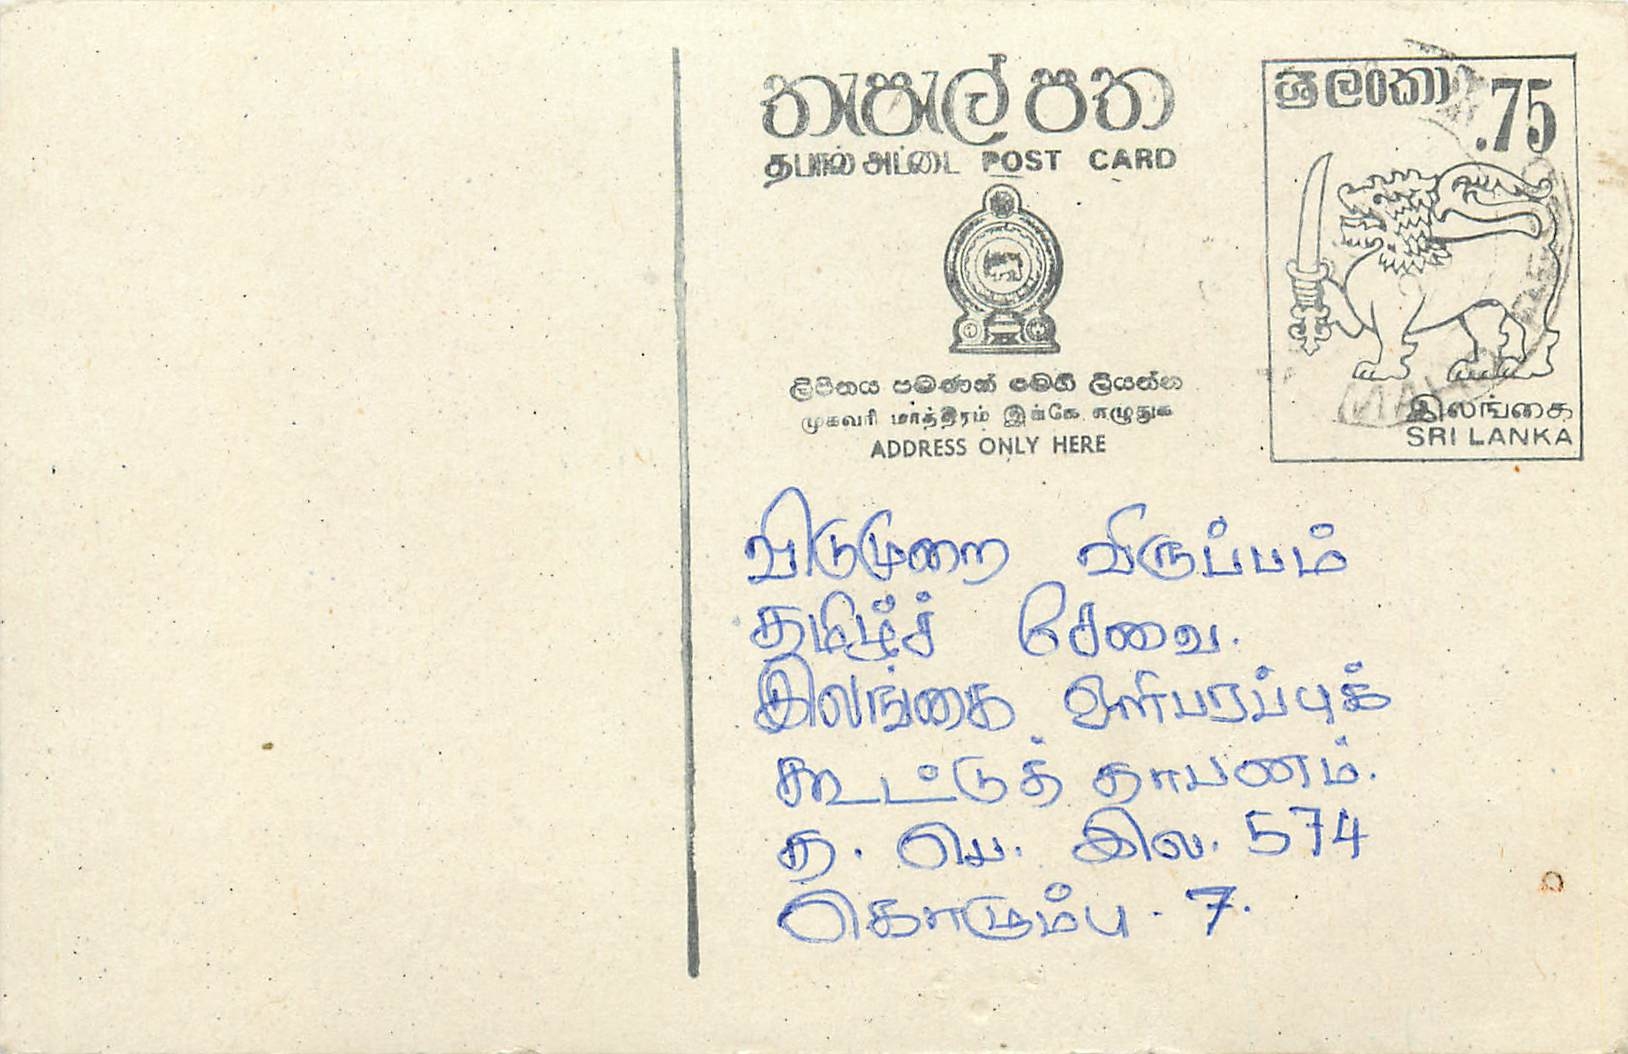 තැපැල් පත
தபால் அட்டை POST CARD
ශ්‍රී ලංකා .75
ලිපිනය පමණක් මෙහි ලියන්න
முகவரி மாத்திரம் இங்கே எழுதுக
ADDRESS ONLY HERE
இலங்கை
SRI LANKA
விடுமுறை விருப்பம்
தமிழ்ச் சேவை.
இலங்கை ஒளிபரப்புக்
கூட்டுத் தாபணம்.
த. பெ. இல. 574
கொழும்பு - 7.